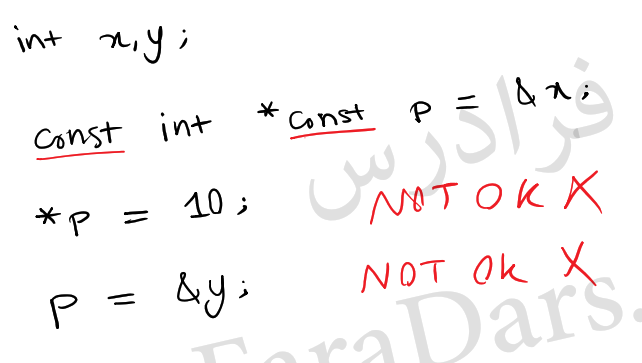 int x,y;
const int *const p = &x;
*p = 10; NOT OK X
p = &y; NOT Ok X
فرادرس
FaraDars.